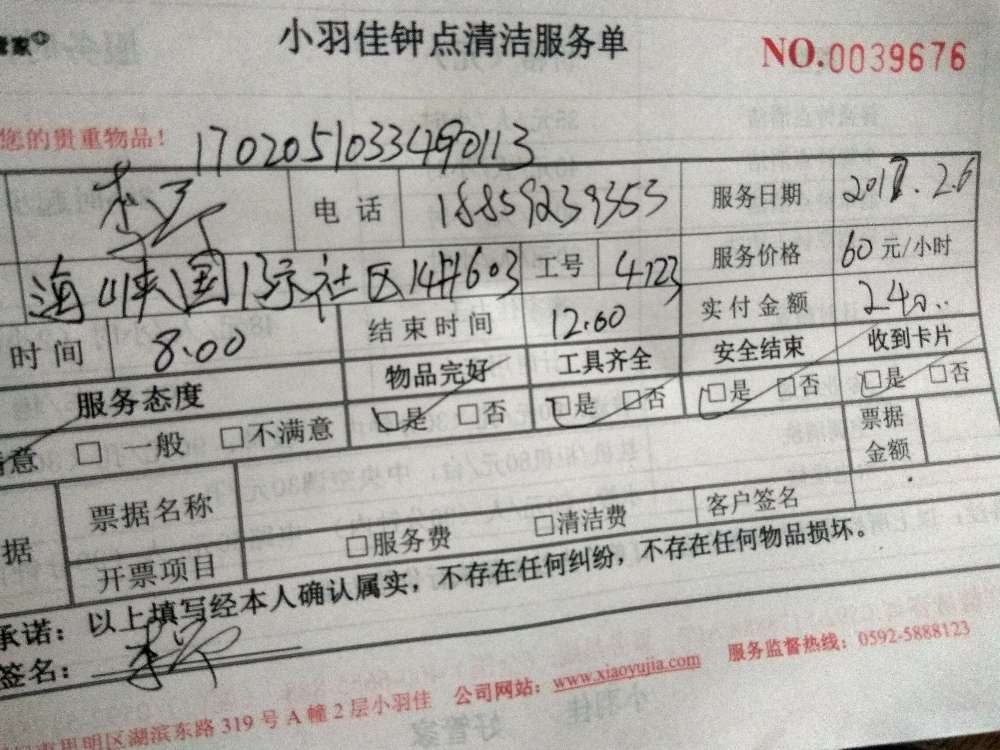 管家
小羽佳钟点清洁服务单
NO.0039676
您的贵重物品！
1702051033490113
电话 18859239353 服务日期 2017.2.6
海峡国际社区14#603 工号 4723 服务价格 60元/小时
时间 8.00 结束时间 12.00 实付金额 240..
服务态度 物品完好 工具齐全 安全结束 收到卡片
满意 □一般 □不满意 □是 □否 □是 □否 □是 □否 □是 □否
据 票据名称 票据金额
开票项目 □服务费 □清洁费 客户签名
承诺：以上填写经本人确认属实，不存在任何纠纷，不存在任何物品损坏。
签名：
思明区湖滨东路319号A幢2层小羽佳 公司网站：www.xiaoyujia.com 服务监督热线：0592-5888123